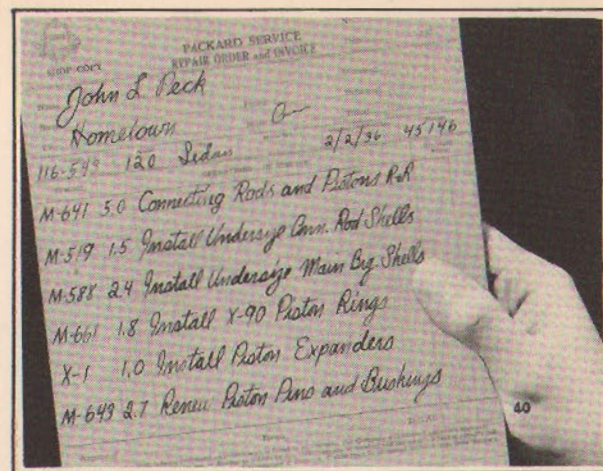 PACKARD SERVICE
REPAIR ORDER and INVOICE
SHOP COPY
John L. Peck
Hometown
116-549 120 Sedan 2/2/36 45146
M-641 5.0 Connecting Rods and Pistons R&R
M-519 1.5 Install Undersize Conn. Rod Shells
M-588 2.4 Install Undersize Main Brg. Shells
M-661 1.8 Install X-90 Piston Rings
X-1 1.0 Install Piston Expanders
M-643 2.7 Renew Piston Pins and Bushings
40